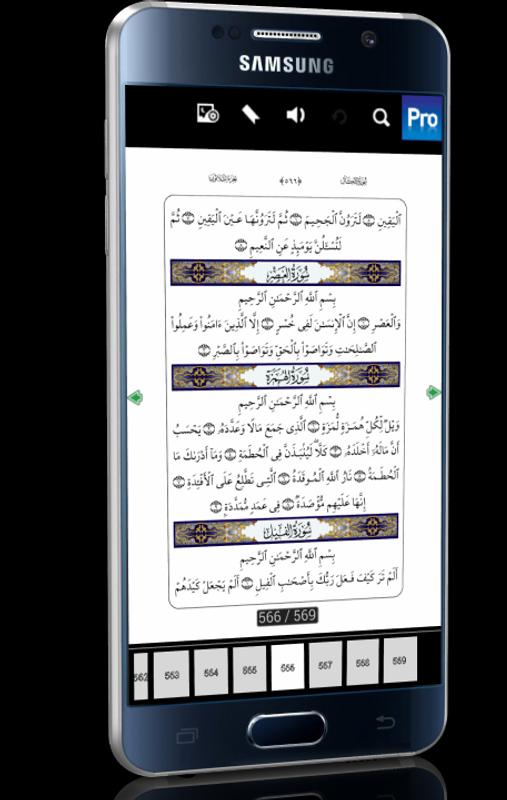 SAMSUNG
Pro
﴿٥٦٦﴾
ٱلْيَقِينِ ۝ لَتَرَوُنَّ ٱلْجَحِيمَ ۝ ثُمَّ لَتَرَوُنَّهَا عَيْنَ ٱلْيَقِينِ ۝ ثُمَّ
لَتُسْـَٔلُنَّ يَوْمَئِذٍ عَنِ ٱلنَّعِيمِ ۝
سُورَةُ العَصْرِ
بِسْمِ ٱللَّهِ ٱلرَّحْمَٰنِ ٱلرَّحِيمِ
وَٱلْعَصْرِ ۝ إِنَّ ٱلْإِنسَٰنَ لَفِى خُسْرٍ ۝ إِلَّا ٱلَّذِينَ ءَامَنُوا۟ وَعَمِلُوا۟
ٱلصَّٰلِحَٰتِ وَتَوَاصَوْا۟ بِٱلْحَقِّ وَتَوَاصَوْا۟ بِٱلصَّبْرِ ۝
سُورَةُ الهُمَزَةِ
بِسْمِ ٱللَّهِ ٱلرَّحْمَٰنِ ٱلرَّحِيمِ
وَيْلٌ لِّكُلِّ هُمَزَةٍ لُّمَزَةٍ ۝ ٱلَّذِى جَمَعَ مَالًا وَعَدَّدَهُۥ ۝ يَحْسَبُ
أَنَّ مَالَهُۥٓ أَخْلَدَهُۥ ۝ كَلَّا ۖ لَيُنۢبَذَنَّ فِى ٱلْحُطَمَةِ ۝ وَمَآ أَدْرَىٰكَ مَا
ٱلْحُطَمَةُ ۝ نَارُ ٱللَّهِ ٱلْمُوقَدَةُ ۝ ٱلَّتِى تَطَّلِعُ عَلَى ٱلْأَفْـِٔدَةِ ۝
إِنَّهَا عَلَيْهِم مُّؤْصَدَةٌ ۝ فِى عَمَدٍ مُّمَدَّدَةٍۭ ۝
سُورَةُ الفِيلِ
بِسْمِ ٱللَّهِ ٱلرَّحْمَٰنِ ٱلرَّحِيمِ
أَلَمْ تَرَ كَيْفَ فَعَلَ رَبُّكَ بِأَصْحَٰبِ ٱلْفِيلِ ۝ أَلَمْ يَجْعَلْ كَيْدَهُمْ
566 / 569
562 553 554 555 556 557 558 559